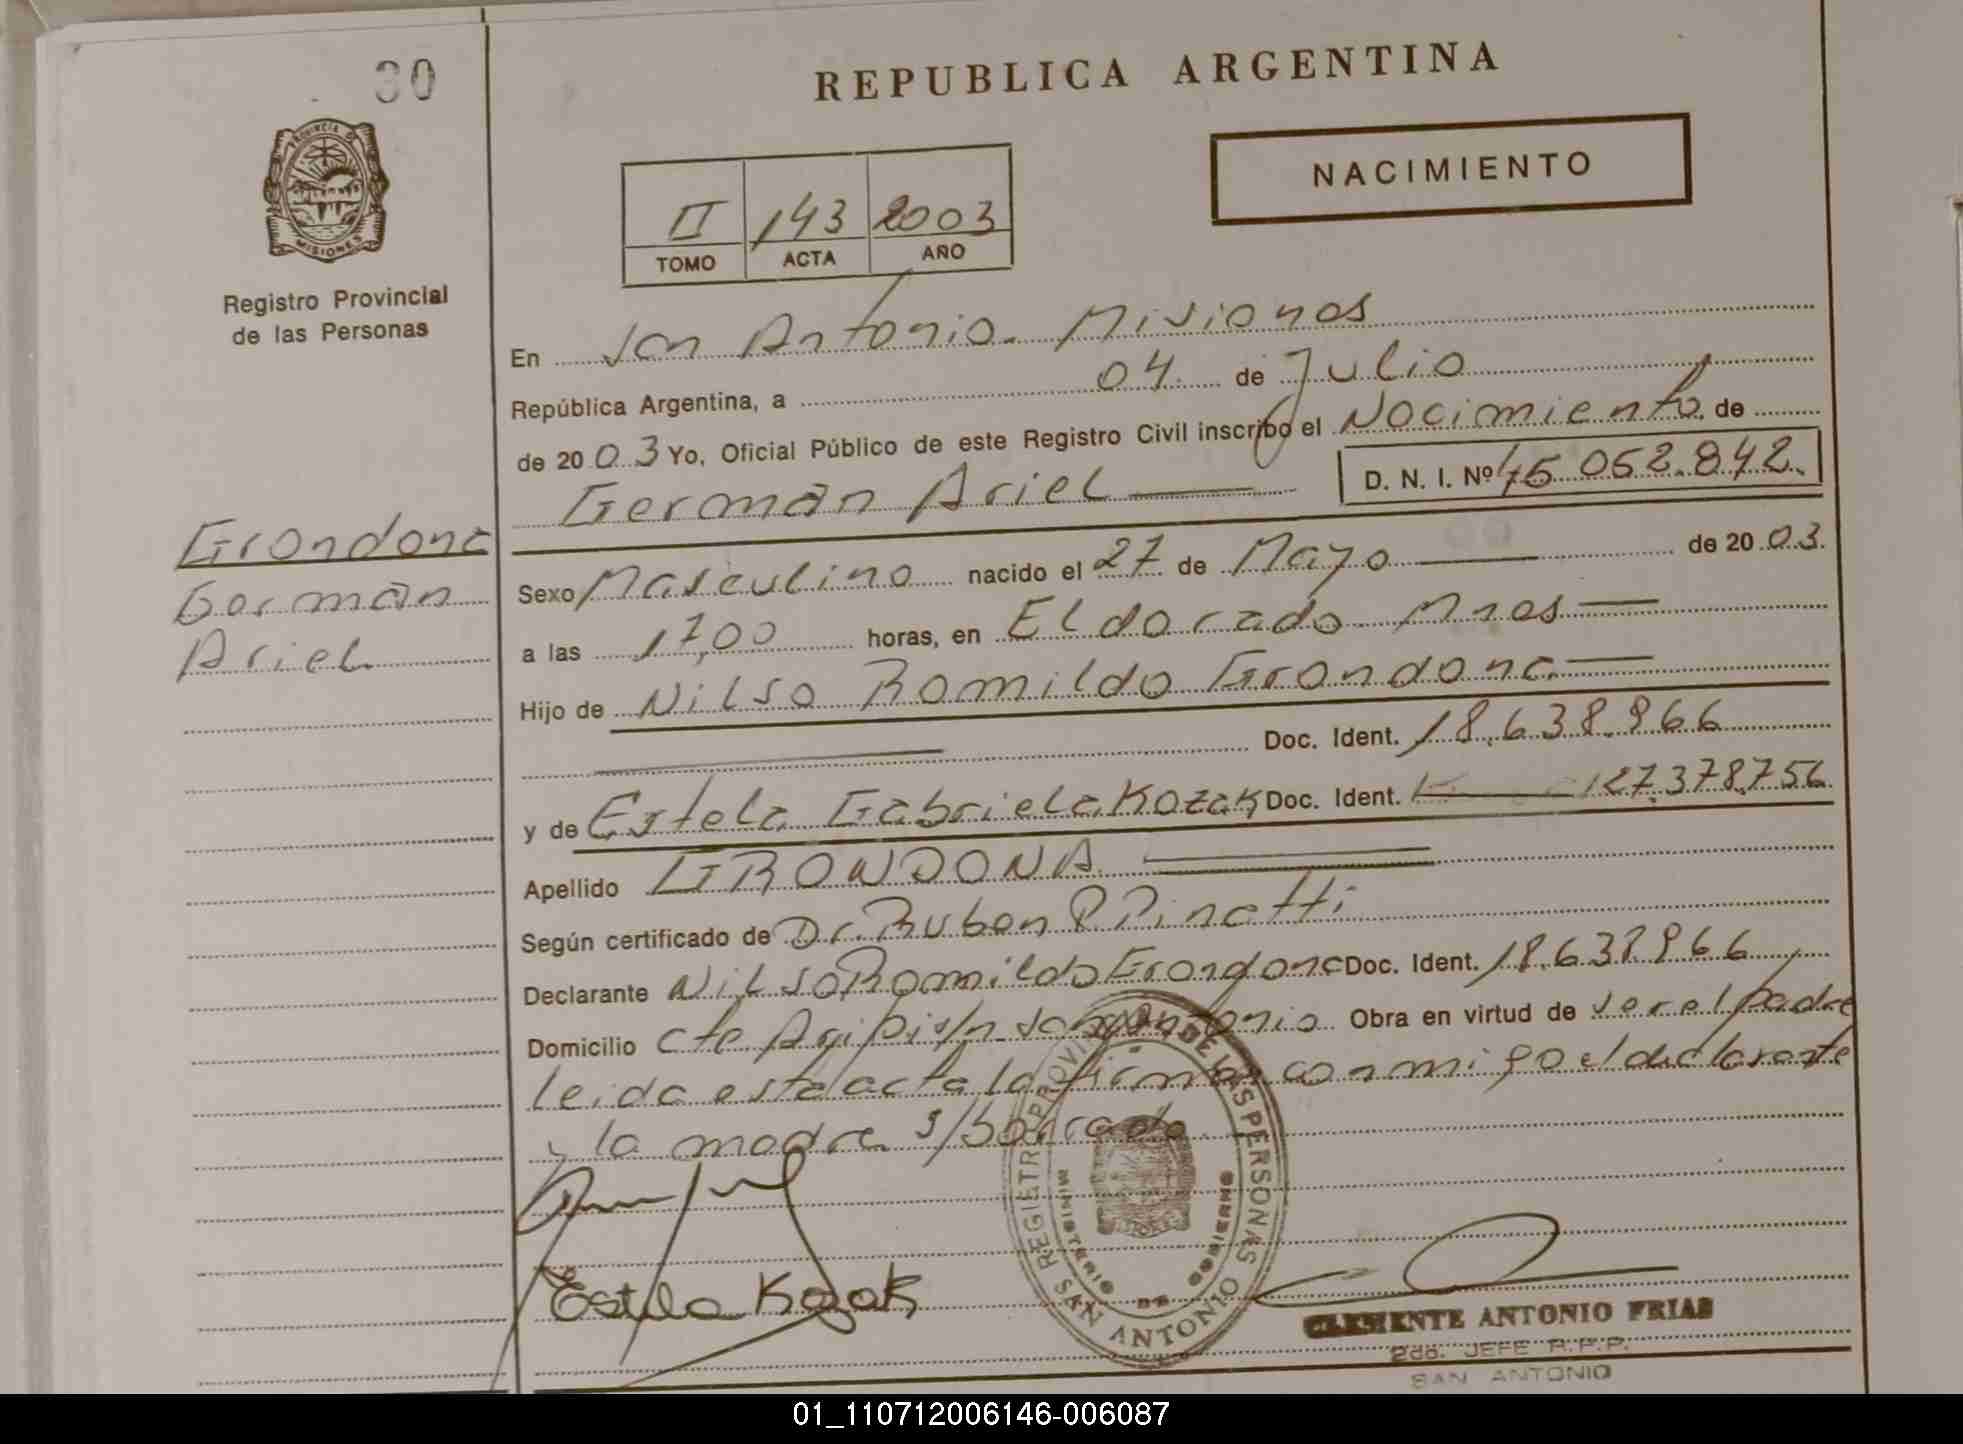 30
REPUBLICA ARGENTINA
NACIMIENTO
PROVINCIA DE
MISIONES
Registro Provincial
de las Personas
II 143 2003
TOMO ACTA AÑO
En San Antonio. Misiones
República Argentina, a 04 de Julio
de 2003 Yo, Oficial Público de este Registro Civil inscribo el Nacimiento de
Germán Ariel D. N. I. Nº 45.052.842.
Grondona
Germán
Ariel
Sexo Masculino nacido el 27 de Mayo de 2003.
a las 17,00 horas, en Eldorado Mnes
Hijo de Nilso Romildo Grondona
Doc. Ident. 18.638.966
y de Estela Gabriela Kozak Doc. Ident. 27.378.756
Apellido GRONDONA
Según certificado de Dr. Ruben R Pinatti
Declarante Nilso Romildo Grondona Doc. Ident. 18.638966
Domicilio Cte s/n San Antonio Obra en virtud de ser el padre
leida este acta la firman conmigo el declarante
y la madre s/borrado
REGISTRO PROVINCIAL DE LAS PERSONAS
MINISTERIO DE GOBIERNO
SAN ANTONIO
Estela Kozak
CLEMENTE ANTONIO FRIAS
2do. JEFE R.P.P.
SAN ANTONIO
01_110712006146-006087